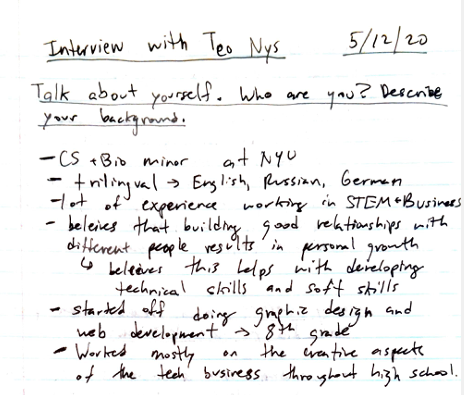 Interview with Teo Nys 5/12/20
Talk about yourself. Who are you? Describe
your background.
- CS + Bio minor at NYU
- trilingual → English, Russian, German
- lot of experience working in STEM + Business
- beleives that building good relationships with
different people results in personal growth
↳ beleives this helps with developing
technical skills and soft skills
- started off doing graphic design and
web development → 8th grade
- Worked mostly on the creative aspects
of the tech business throughout high school.